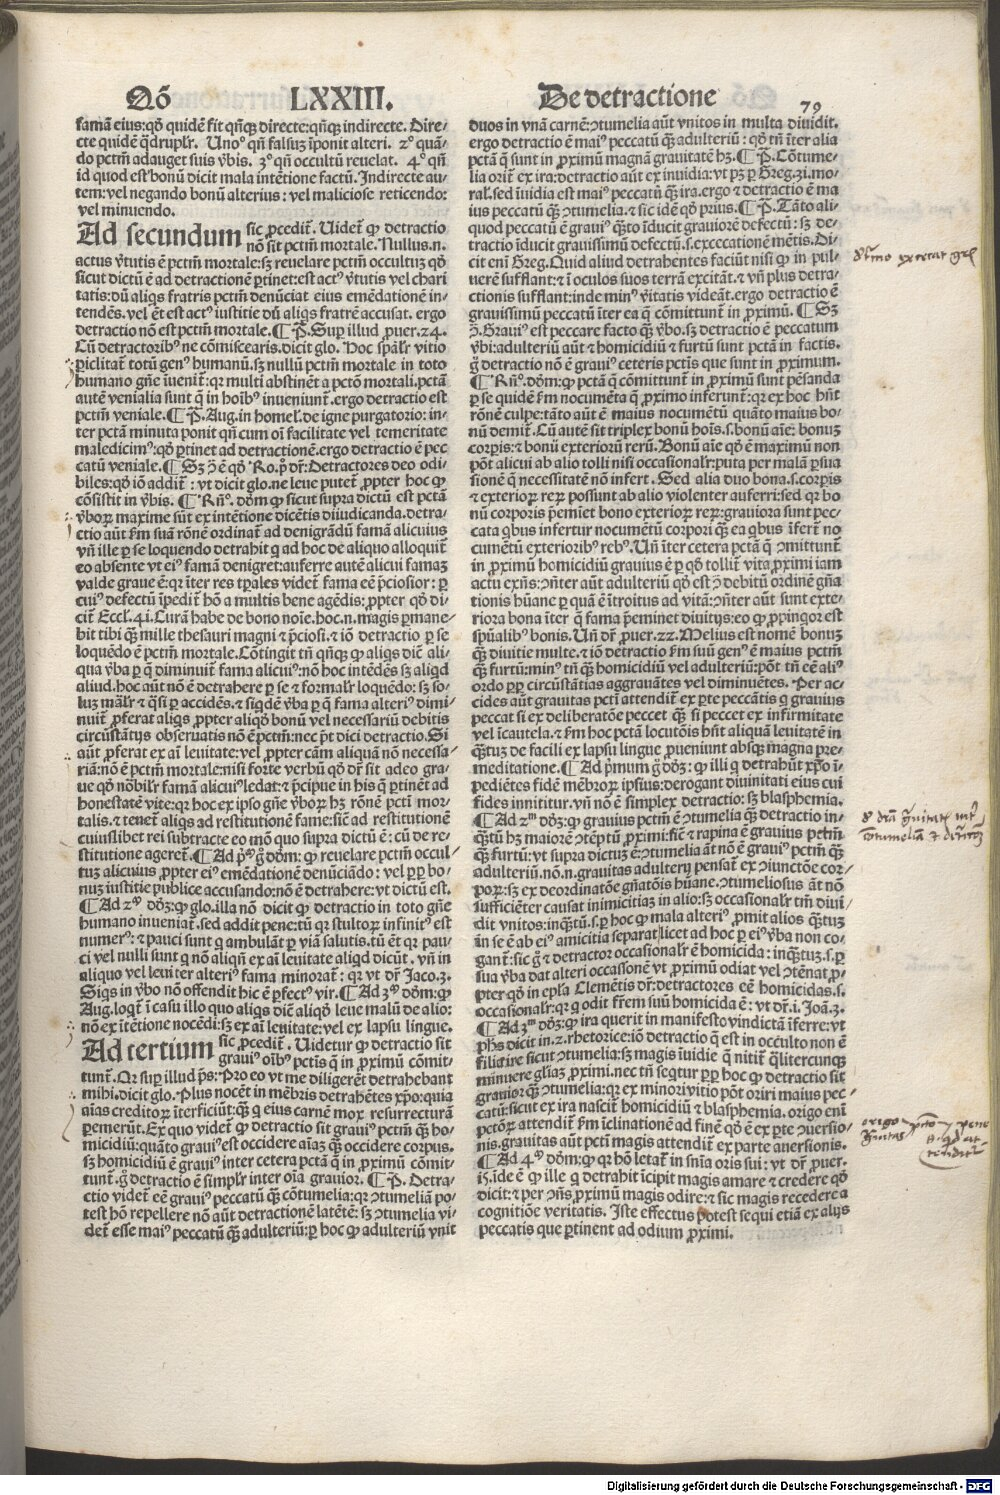 Qō LXXIII. De detractione
79
famā eius: qȯ quidē fit qn̄qꝫ directe: qn̄qꝫ indirecte. Dire-
cte quidē q̄drupl'r. Unoº qn̄ falsuꝫ īponit alteri. 2º quā-
do pctm̄ adauget suis v̄bis. 3º qn̄ occultū reuelat. 4º qn̄
id quod est bonū dicit mala intētione factū. Indirecte au-
tem: vel negando bonū alterius: vel maliciose reticendo:
vel minuendo.
Ad secundum sic ꝓcedit̄. Uidet̄ ꝙ detractio
nō sit pctm̄ mortale. Nullus.n.
actus v̄tutis ē pctm̄ mortale: sꝫ reuelare pctm̄ occultuꝫ qȯ
sicut dictū ē ad detractionē ꝑtinet: est actꝰ v̄tutis vel chari
tatis: dū aliq̄s fratris pctm̄ denūciat eius emēdationē in-
tendēs. vel ēt est actꝰ iustitie dū aliq̄s fratrē accusat. ergo
detractio nō est pctm̄ mortale. ¶ P̄. Suꝑ illud ꝓuer.24.
Cū detractoribꝰ ne cōmiscearis. dicit glo. Hoc spāl'r vitio
ꝑiclitat̄ totū genꝰ humanū. sꝫ nullū pctm̄ mortale in toto
humano gn̄e īuenit̄: qꝛ multi abstinēt a pctō mortali. pctā
autē venialia sunt q̄ in hoībꝰ inueniunt̄. ergo detractio est
pctm̄ veniale. ¶ P̄. Aug. in homel. de igne purgatorio: in-
ter pctā minuta ponit qn̄ cum oī facilitate vel temeritate
maledicimꝰ: qȯ ꝑtinet ad detractionē. ergo detractio ē pec
catū veniale. ¶ Sꝫ ɔ̄ ē qȯ Ro. p̊ dr̄: Detractores deo odi-
biles: qȯ iō addit̄: vt dicit glo. ne leue putet̄ ꝓpter hoc ꝙ
cōsistit in v̄bis. ¶ Rn̄º. dōm ꝙ sicut supra dictū est pctā
v̄boꝝ maxime sūt ex intētione dicētis diiudicanda. detra-
ctio aūt ẜm suā rōnē ordinat̄ ad denigrādū famā alicuius
vn̄ ille ꝑ se loquendo detrahit q ad hoc de aliquo alloquit̄
eo absente vt eiꝰ famā denigret: auferre autē alicui famaꝫ
valde graue ē: qꝛ īter res tꝑales videt̄ fama eē p̄ciosior: ꝑ
cuiꝰ defectū īpedit̄ hō a multis bene agēdis: ꝓpter qȯ di-
cit̄ Eccl'.41. Curā habe de bono noīe. hoc.n. magis ꝑmane-
bit tibi qꝫ mille thesauri magni ⁊ p̄ciosi. ⁊ iō detractio ꝑ se
loquēdo ē pctm̄ mortale. Cōtingit tn̄ qn̄qꝫ ꝙ aliq̄s diē ali-
qua v̄ba ꝑ q̄ diminuit̄ fama alicuiꝰ: nō hoc intēdēs sꝫ aliqd
aliud. hoc aūt nō ē detrahere ꝑ se ⁊ formal'r loquēdo: sꝫ so-
luꝫ māl'r ⁊ q̄si ꝑ accidēs. ⁊ siq̄dē v̄ba ꝑ q̄ fama alteriꝰ dimi-
nuit̄ ꝓferat aliq̄s ꝓpter aliqȯ bonū vel necessariū debitis
circūstātijs obseruatis nō ē pctm̄: nec p̄t dici detractio. Si
aūt ꝓferat ex aī leuitate: vel ꝓpter cām aliquā nō necessa-
riā: nō ē pctm̄ mortale: nisi forte verbū qȯ dr̄ sit adeo gra-
ue qȯ nōbil'r famā alicuiꝰ ledat: ⁊ p̄cipue in his q̄ ꝑtinēt ad
honestatē vite: qꝛ hoc ex ipso gn̄e v̄boꝝ hꝫ rōnē pctī mor-
talis. ⁊ tenet̄ aliq̄s ad restitutionē fame: siċ ad restitutionē
cuiuslibet rei subtracte eo mō quo supra dictū ē: cū de re-
stitutione ageret̄. ¶ Ad p̄m̄ gͦ dōm: ꝙ reuelare pctm̄ occul-
tuꝫ alicuius ꝓpter eiꝰ emēdationē denūciādo: vel ꝓꝑ bo-
nuꝫ iustitie publice accusando: nō ē detrahere: vt dictū est.
¶ Ad 2m̄ dōꝫ: ꝙ glo. illa nō dicit ꝙ detractio in toto gn̄e
humano inueniat̄. sed addit pene: tū qꝛ stultoꝝ infinitꝰ est
numerꝰ: ⁊ pauci sunt q ambulāt ꝑ viā salutis. tū ēt qꝛ pau-
ci vel nulli sunt q nō aliqn̄ ex aī leuitate aliqd dicūt. vn̄ in
aliquo vel leuiter alteriꝰ fama minorat̄: qꝛ vt dr̄ Jaco.3.
Siqs in v̄bo nō offendit hic ē ꝑfectꝰ vir. ¶ Ad 3m̄ dōm: ꝙ
Aug. loqt̄ ī casu illo quo aliq̄s diē aliqȯ leue malū de alio:
nō ex ītētione nocēdi: sꝫ ex aī leuitate: vel ex lapsu lingue.
Ad tertium sic ꝓcedit̄. Uidetur ꝙ detractio sit
grauiꝰ oībꝰ pctīs q̄ in ꝓximū cōmit-
tunt̄. Qꝛ suꝑ illud ps̄: Pro eo vt me diligerēt detrahebant
mihi. dicit glo. Plus nocēt in mēbris detrahētes xp̄o: quia
aīas creditoꝝ īterficiūt: qꝫ q eius carnē mox resurrecturā
ꝑemerūt. Ex quo videt̄ ꝙ detractio sit grauiꝰ pctm̄ qꝫ ho-
micidiū: quāto grauiꝰ est occidere aīaꝫ qꝫ occidere corpus.
sꝫ homicidiū ē grauiꝰ inter cetera pctā q̄ in ꝓximū cōmit-
tunt̄. gͦ detractio ē simpl'r inter oīa grauior. ¶ P̄. Detra-
ctio videt̄ eē grauiꝰ peccatū qꝫ cōtumelia: qꝛ ɔtumeliā po-
test hō repellere nō aūt detractionē latētē: sꝫ ɔtumelia vi-
det̄ esse maiꝰ peccatū qꝫ adulteriū: ꝑ hoc ꝙ adulteriū vnit
duos in vnā carnē: ɔtumelia aūt vnitos in multa diuidit.
ergo detractio ē maiꝰ peccatū qꝫ adulteriū: qȯ tn̄ īter alia
pctā q̄ sunt in ꝓximū magnā grauitatē hꝫ. ¶ P̄. Cōtume-
lia orit̄ ex ira: detractio aūt ex inuidia: vt pꝫ ꝑ Greg.31. mo-
ral'. sed īuidia est maiꝰ peccatū qꝫ ira. ergo ⁊ detractio ē ma
ius peccatū qꝫ ɔtumelia. ⁊ sic idē qȯ prius. ¶ P̄. Tāto ali-
quod peccatū ē grauiꝰ q̄ꝫto īducit grauiorē defectū: sꝫ de-
tractio īducit grauissimū defectū.s. excecationē mētis. Di-
cit enī Greg. Quid aliud detrahentes faciūt nisi ꝙ in pul-
uerē sufflant: ⁊ ī oculos suos terrā excitāt. ⁊ vn̄ plus detra-
ctionis sufflant: inde minꝰ v̄itatis videāt. ergo detractio ē
grauissimū peccatū īter ea q̄ cōmittunt̄ in ꝓximū. ¶ Sꝫ
ɔ̄. Grauiꝰ est peccare facto qꝫ v̄bo. sꝫ detractio ē peccatum
v̄bi: adulteriū aūt ⁊ homicidiū ⁊ furtū sunt pctā in factis.
gͦ detractio nō ē grauiꝰ ceteris pctīs que sunt in ꝓximum.
¶ Rn̄º. dōm: ꝙ pctā q̄ cōmittunt̄ in ꝓximū sunt pēsanda
ꝑ se quidē ẜm nocumēta q̄ ꝓximo inferunt̄: qꝛ ex hoc hn̄t
rōnē culpe: tāto aūt ē maius nocumētū quāto maius bo-
nū demit̄. Cū autē sit triplex bonū hoīs.s. bonū aīe: bonuꝫ
corꝑis: ⁊ bonū exteriorū rerū. Bonū aīe qȯ ē maximū non
pōt alicui ab alio tolli nisi occasional'r: puta per malā ꝑsua
sionē q̄ necessitatē nō infert. Sed alia duo bona.s. corꝑis
⁊ exterioꝝ reꝝ possunt ab alio violenter auferri: sed qꝛ bo
nū corporis p̄eminet bono exterioꝝ reꝝ: grauiora sunt pec-
cata qbus infertur nocumētū corpori qꝫ ea qbus īfert̄ no
cumētū exterioribꝰ rebꝰ. Un̄ īter cetera pctā q̄ ɔmittunt̄
in ꝓximū homicidiū grauius ē ꝑ qȯ tollit̄ vita ꝓximi iam
actu exn̄s: ɔn̄ter aūt adulteriū qȯ est ɔ̄ debitū ordinē gn̄a
tionis hūane ꝑ quā ē ītroitus ad vitā: ɔn̄ter aūt sunt exte-
riora bona īter q̄ fama p̄eminet diuitijs: eo ꝙ ꝓpinqor est
spūalibꝰ bonis. Un̄ dr̄ ꝓuer.22. Melius est nomē bonuꝫ
qꝫ diuitie multe. ⁊ iō detractio ẜm suū genꝰ ē maius pctm̄
qꝫ furtū: minꝰ tn̄ qꝫ homicidiū vel adulteriū: pōt tn̄ eē aliꝰ
ordo ꝓꝑ circūstātias aggrauātes vel diminuētes. Per ac-
cides aūt grauitas pctī attendit̄ ex ꝑte peccātis q grauius
peccat si ex deliberatōe peccet qꝫ si peccet ex infirmitate
vel īcautela. ⁊ ẜm hoc pctā locutōis hn̄t aliquā leuitatē in
q̄ꝫtuꝫ de facili ex lapsu lingue ꝓueniunt absqꝫ magna pre-
meditatione. ¶ Ad p̄mum gͦ dōꝫ: ꝙ illi q detrahūt xp̄o ī-
pediētes fidē mēbroꝝ ipsius: derogant diuinitati eius cui
fides innititur. vn̄ nō ē simplex detractio: sꝫ blasphemia.
¶ Ad 2m dōꝫ: ꝙ grauius pctm̄ ē ɔtumelia qꝫ detractio in-
q̄ꝫtū hꝫ maiorē ɔtēptū ꝓximi: siċ ⁊ rapina ē grauius pctm̄
qꝫ furtū: vt supra dictuꝫ ē: ɔtumelia aūt nō ē grauiꝰ pctm̄ qꝫ
adulteriū. nō.n. grauitas adulterij pensat̄ ex ɔiunctōe cor-
poꝝ: sꝫ ex deordinatōe gn̄atōis hūane. ɔtumeliosus aūt nō
sufficiēter causat inimicitiaꝫ in alio: sꝫ occasional'r tm̄ diui-
dit vnitos: inq̄ꝫtū.s. ꝑ hoc ꝙ mala alteriꝰ ꝓmit alios q̄ꝫtuꝫ
in se ē ab eiꝰ amicitia separat: licet ad hoc ꝑ eiꝰ v̄ba non co-
gant̄: sic gͦ ⁊ detractor occasional'r ē homicida: inq̄ꝫtuꝫ.s. ꝑ
sua v̄ba dat alteri occasionē vt ꝓximū odiat vel ɔtēnat. ꝓ-
pter qȯ in epl'a Clemētis dr̄: detractores eē homicidas.s.
occasional'r: qꝛ q odit fr̄em suū homicida ē: vt dr̄.1. Joā.3.
¶ Ad 3m dōꝫ: ꝙ ira querit in manifesto vindictā īferre: vt
ph̄s dicit in.2. rhetorice: iō detractio q̄ est in occulto non ē
filia ire sicut ɔtumelia: sꝫ magis īuidie q̄ nitit̄ q̄litercunqꝫ
minuere gl'iaꝫ ꝓximi. nec tn̄ seqtur ꝑꝑ hoc ꝙ detractio sit
grauior qꝫ ɔtumelia: qꝛ ex minori vitio pōt oriri maius pec-
catū: sicut ex ira nascit̄ homicidiū ⁊ blasphemia. origo enī
pctōꝝ attendit̄ ẜm īclinationē ad finē qȯ ē ex ꝑte ɔuersio-
nis. grauitas aūt pctī magis attendit̄ ex parte auersionis.
¶ Ad 4m̄ dōm: ꝙ qꝛ hō letat̄ in sn̄ia oris sui: vt dr̄ ꝓuer.
15. īde ē ꝙ ille q detrahit īcipit magis amare ⁊ credere qȯ
dicit: ⁊ per ɔn̄s ꝓximū magis odire: ⁊ sic magis recedere a
cognitiōe veritatis. Iste effectus potest sequi etiā ex alijs
peccatis que ꝑtinent ad odium ꝓximi.
origo
Digitalisierung gefördert durch die Deutsche Forschungsgemeinschaft - DFG